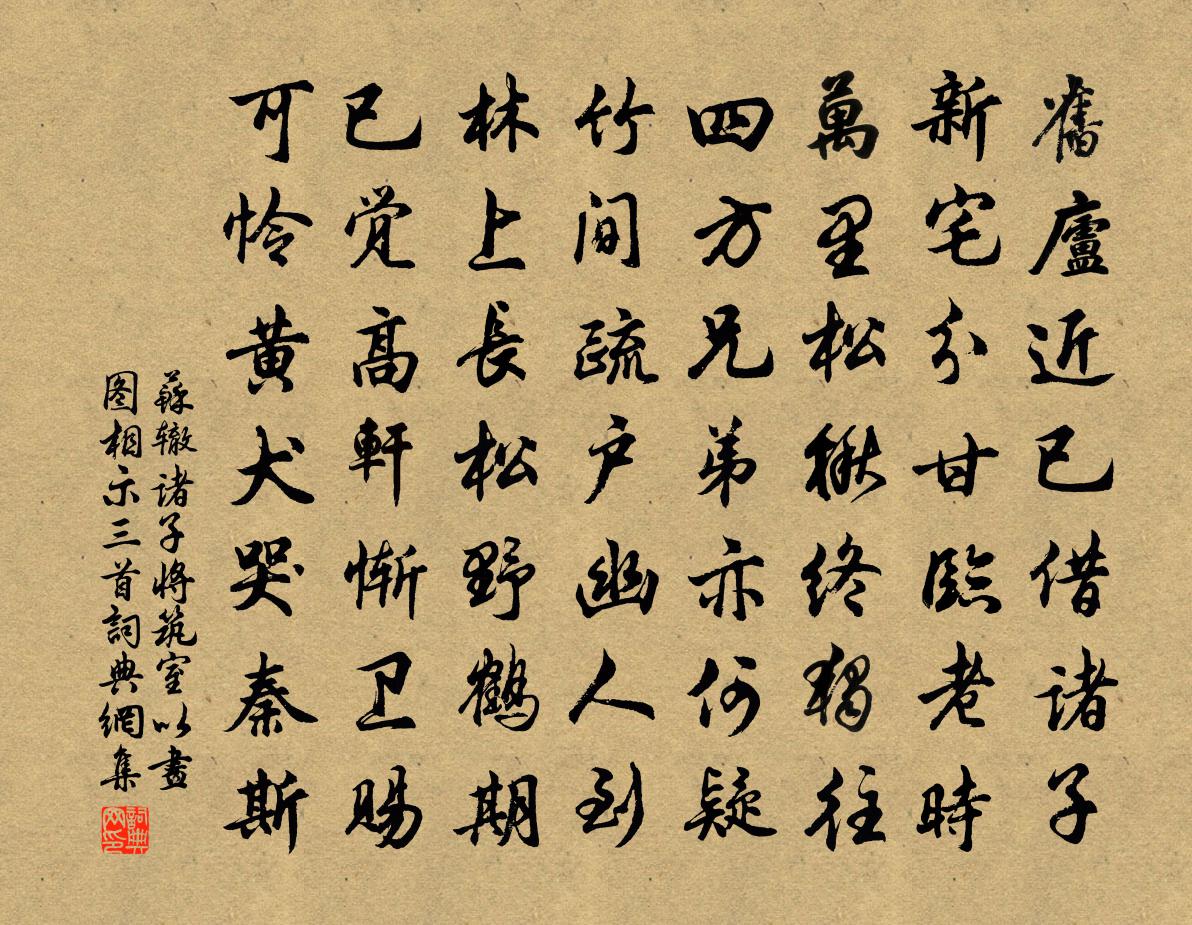 舊廬近已借諸子
新宅分甘臨老時
萬里松楸終獨往
四方兄弟亦何疑
竹間疏户幽人到
林上長松野鶴期
已觉高軒慚卫賜
可怜黄犬哭秦斯
蘇辙諸子將筑室以畫
图相示三首詞典網集
詞典网印